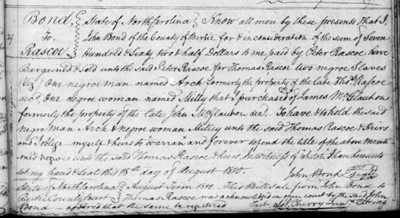 Bond State of North Carolina Know all men by these presents that I
To John Bond of the County of Bertie for & in consideration of the sum of Seven
Rascoe Hundred & Sixty two & half Dollars to me paid by Peter Rascoe have
Bargained & Sold unto the said Peter Rascoe for Thomas two negroe Slaves
Viz. One negroe man named Arch formerly the property of the late Thos. Rascoe
decd. One negroe woman named Milly that I purchased of James McGlauhon
formerly the property of the late John McGlauhon decd. To have & to hold the said
negroe man Arch & negroe woman Milley unto the said Thomas Rascoe & heirs
and I oblige myself & heirs to warran and forever defend the title of the above menti
oned negroes unto the said Thomas Rascoe & heirs. In witness of which I have hereunto
set my hand & seal this 15th day of August 1810.
John Bond Seal
State of North Carolina August Term 1810. This Bill of Sale from John Bond to
Bertie County Court Thomas Rascoe was acknowledged in open court by the said John
Bond ordered that the same be registered Test